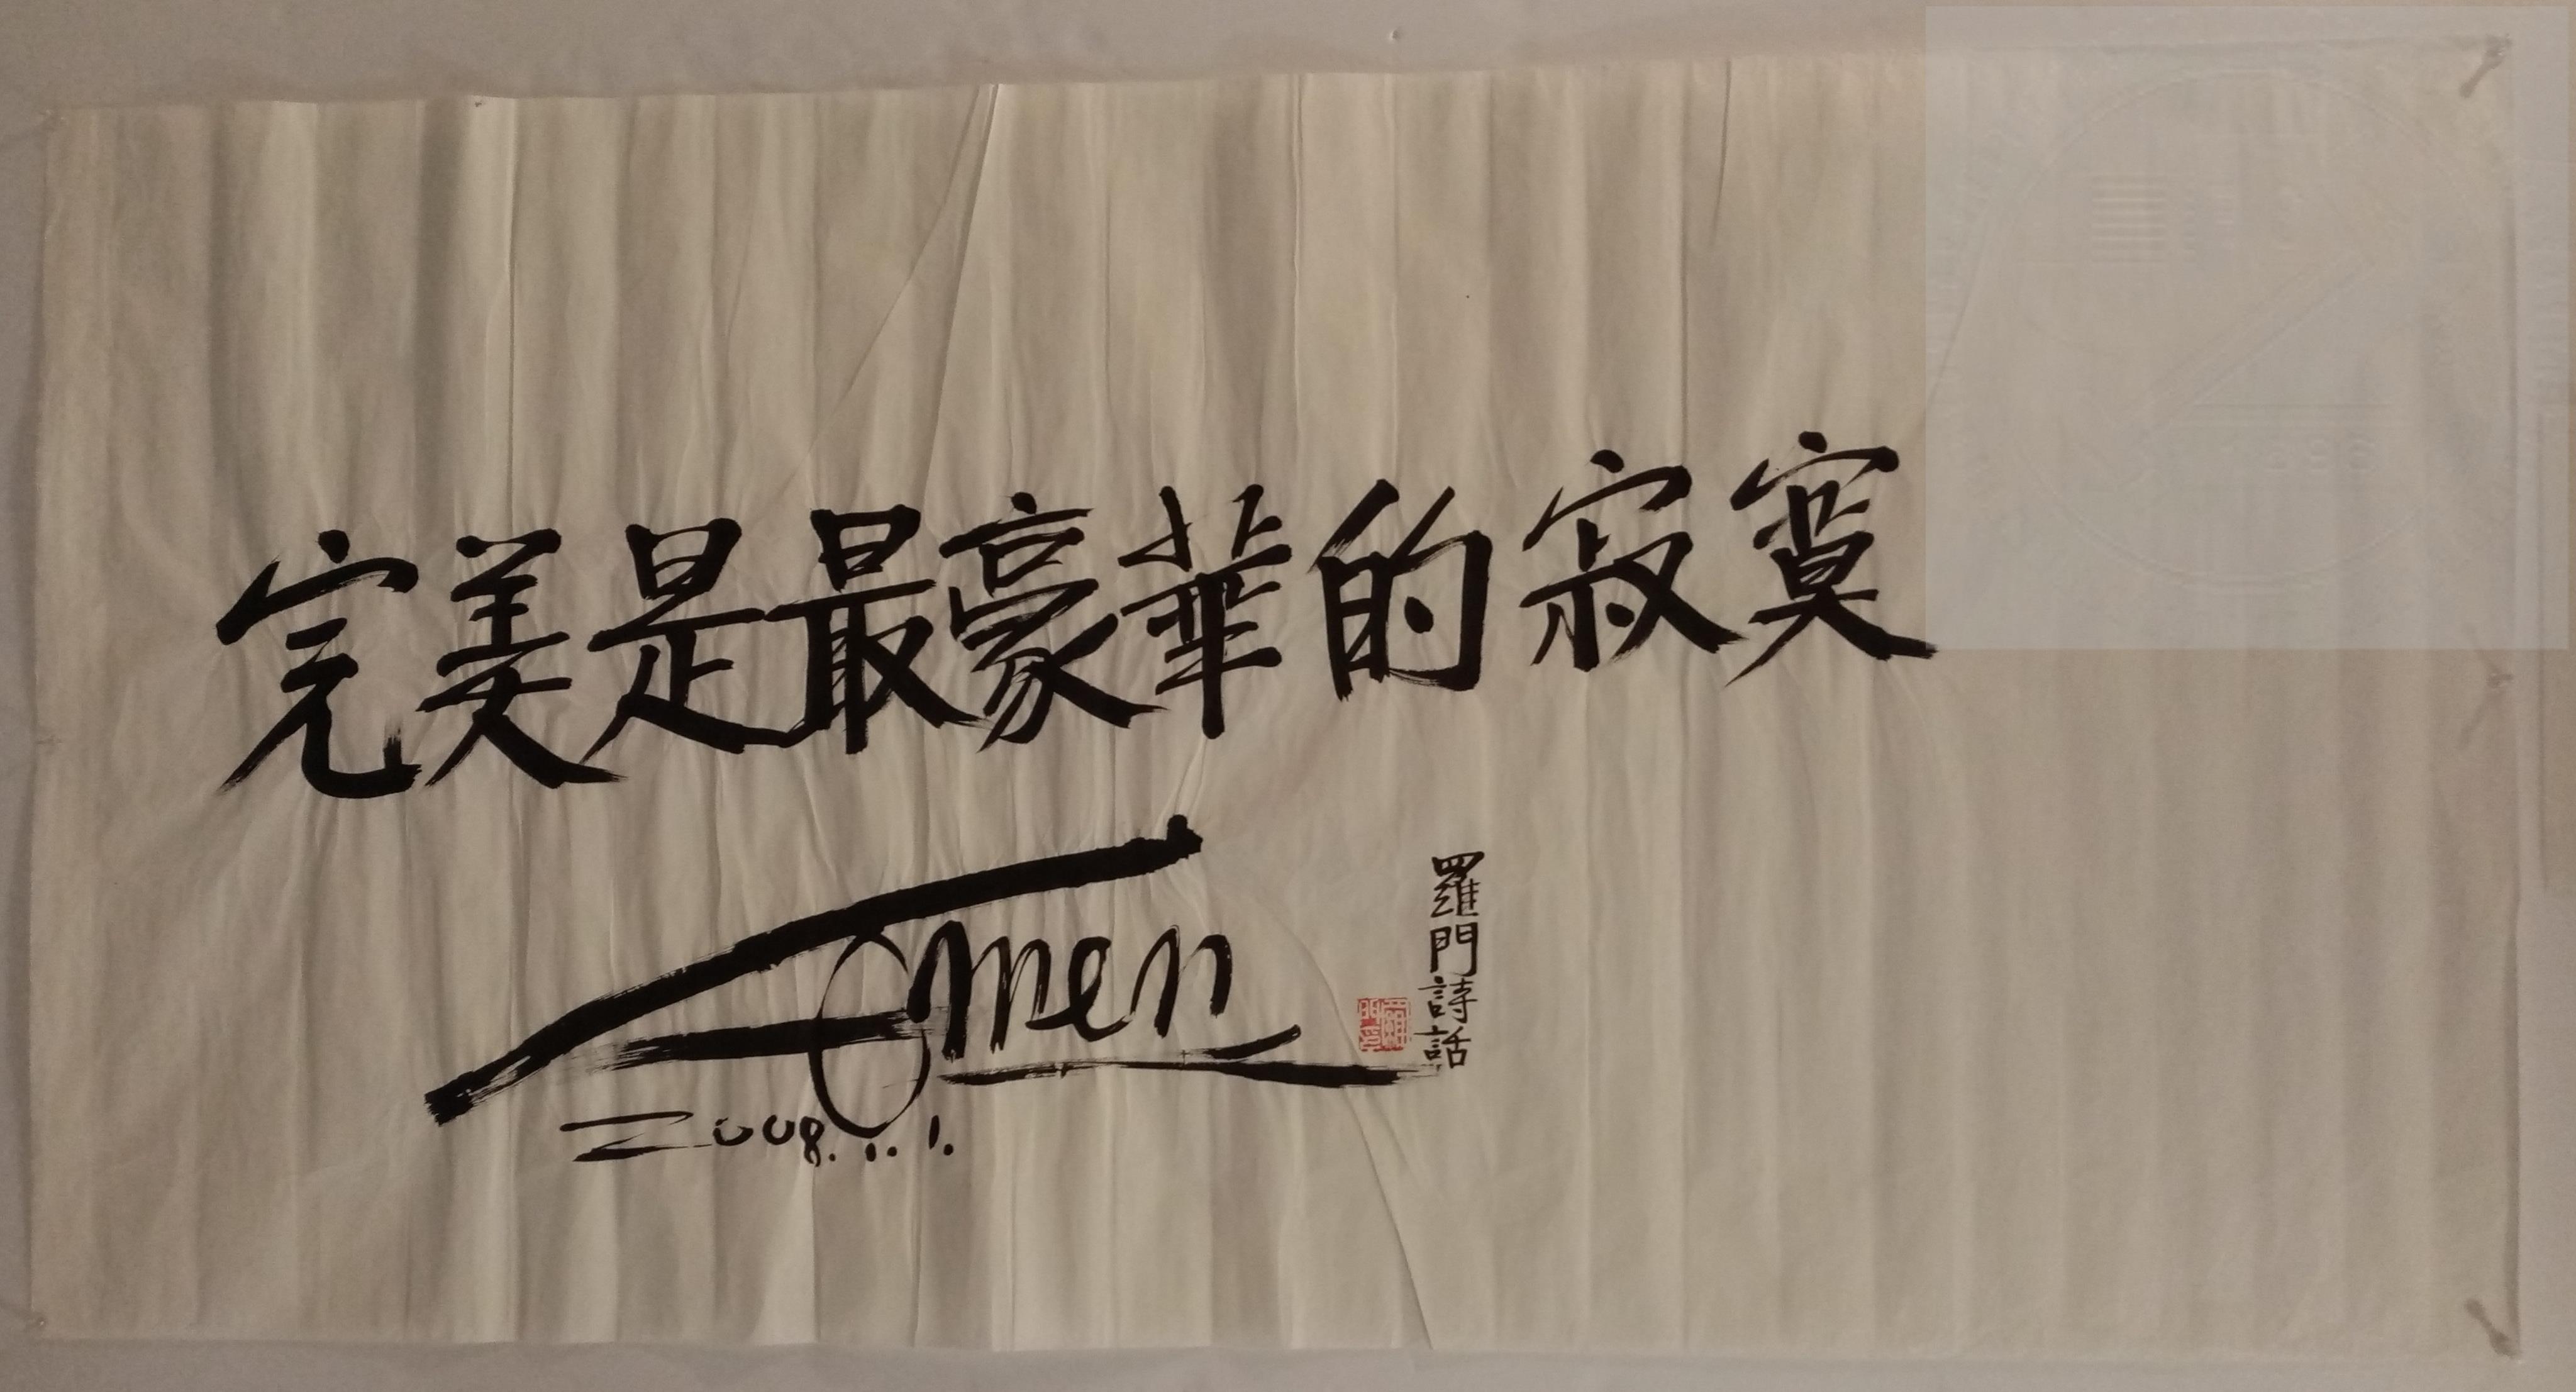 完美是最豪華的寂寞
Lomen
羅門詩話
2008.1.1.